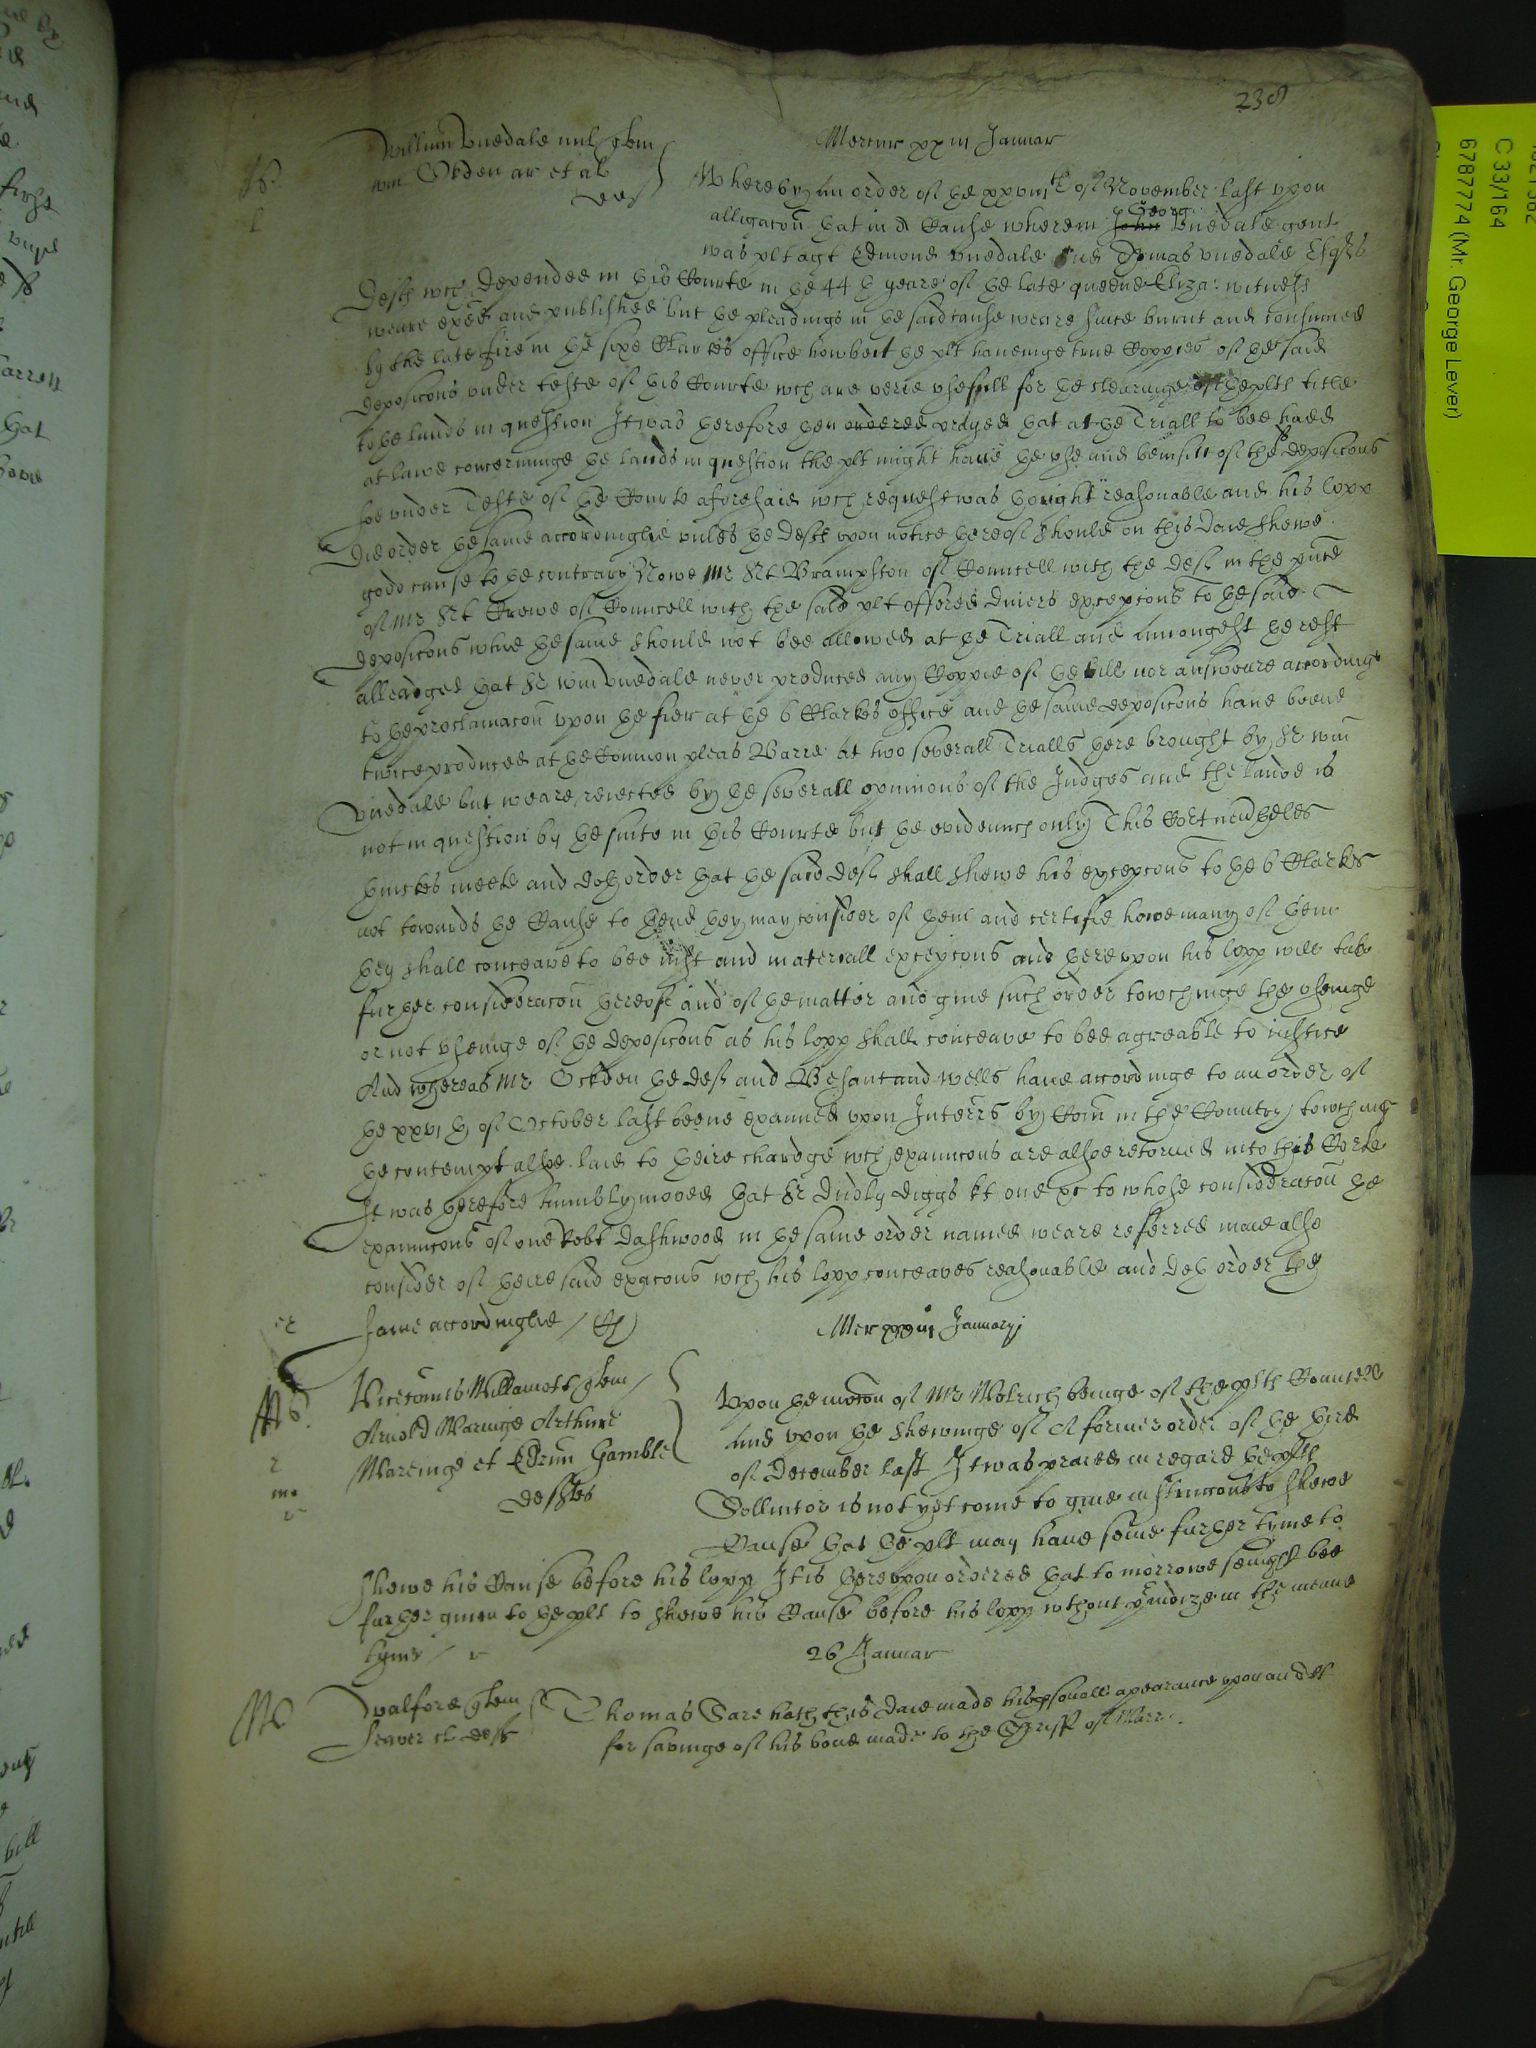 238
Willim Vuedale mil quem
wm Okden ar et al
def
Mercur xxiii Januar
Whereby an order of the xxviiith of November last vpon
alligacon that in A Cause wherein John Georg Vuedale gent
was plt agt Edmond vuedale and Thomas vuedale Esqrs
Defts wch depended in this Courte in the 44 th yeare of the late queene Eliza: witness
weare exed and published but the pleadings in the said cause weare since burnt and consumed
by the late fire in the sixe Clarkes office howbeit the plt haueinge true Coppies of the said
deposicons vnder teste of this Courte wch are verie vsefull for the clearinge of the plts title
to the lands in question It was therefore then ordered prayed that at the Triall to bee hadd
at lawe concerninge the lands in question the plt might haue the vse and benifitt of the deposicons
soe vnder Teste of the Courte aforesaid wch request was thought reasonable and his lopp
did order the same accordinglie vnles the deft vpon notice thereof should on this daie shewe
good cause to the contrary Nowe Mr Srt Brampston of Councell with the deft in the pnce
of Mr Srt Crewe of Councell with the said plt offered divers excepcons to the said
deposicons whie the same should not bee allowed at the Triall and amongest the rest
alleadged that Sr wm Vuedale never produced any Coppie of the bill nor answeare accordinge
to the proclamacon vpon the fier at the 6 Clarkes office and the same deposicons haue beene
twice produced at the Common pleas Barre at two severall Trialls there brought by Sr wm
Vuedale but weare reiected by the severall opinions of the Judges and the lande is
not in question by the suite in this Courte but the evidence only This Cort neuertheles
thinckes meete and doth order that the said deft shall shewe his excepcons to the 6 Clarkes
not towards the Cause to thend they may consider of them and certifie howe many of them
they shall conceave to bee iust and materiall excepcons and therevpon his lopp will take
further consideracon thereof and of the matter and giue such order towchinge the vseinge
or not vseinge of the deposicons as his lopp shall conceave to bee agreable to iustice
And whereas Mr Ockden the deft and Besant and Wells haue accordinge to an order of
the xxvi th of October last beene examined vpon Interrs by Com in the Country towching
the contempt alsoe laid to theire chardge wch examincons are alsoe retorned into this Corte
It was therefore humbly moued that Sr Dudly Diggs kt one &c to whose consideracon the
examincons of one Robt Dashwood in the same order named weare referred maie also
consider of theire said exacons wch his lopp conceaves reasonable and doth order the
same accordinglie /
Mer xxiii Januaryj
Vicecomes Willamott quem
Arnold Waringe Arthure
Wareinge et Edrun Gamble
deftes
Vpon the mocon of Mr Wolrich beinge of the plts Councell
and vpon the shewinge of A former order of the third
of december last It was praied in regard the plts
Sollicitor is not yet come to giue instruccons to shewe
Cause that the plt may haue some further tyme to
shewe his Cause before his lopp It is therevpon ordered that to morrowe sevinight bee
further giuen to the plt to shewe his Cause before his lopp without preiudize in the meane
tyme /
26 Januar
Walford quem
Seaver et deft
Thomas Sare hath this daie made his psonall apearance vpon an Att
for savinge of his bond made to the Shriff of Warr.
C 33/164
6787774 (Mr. George Lever)